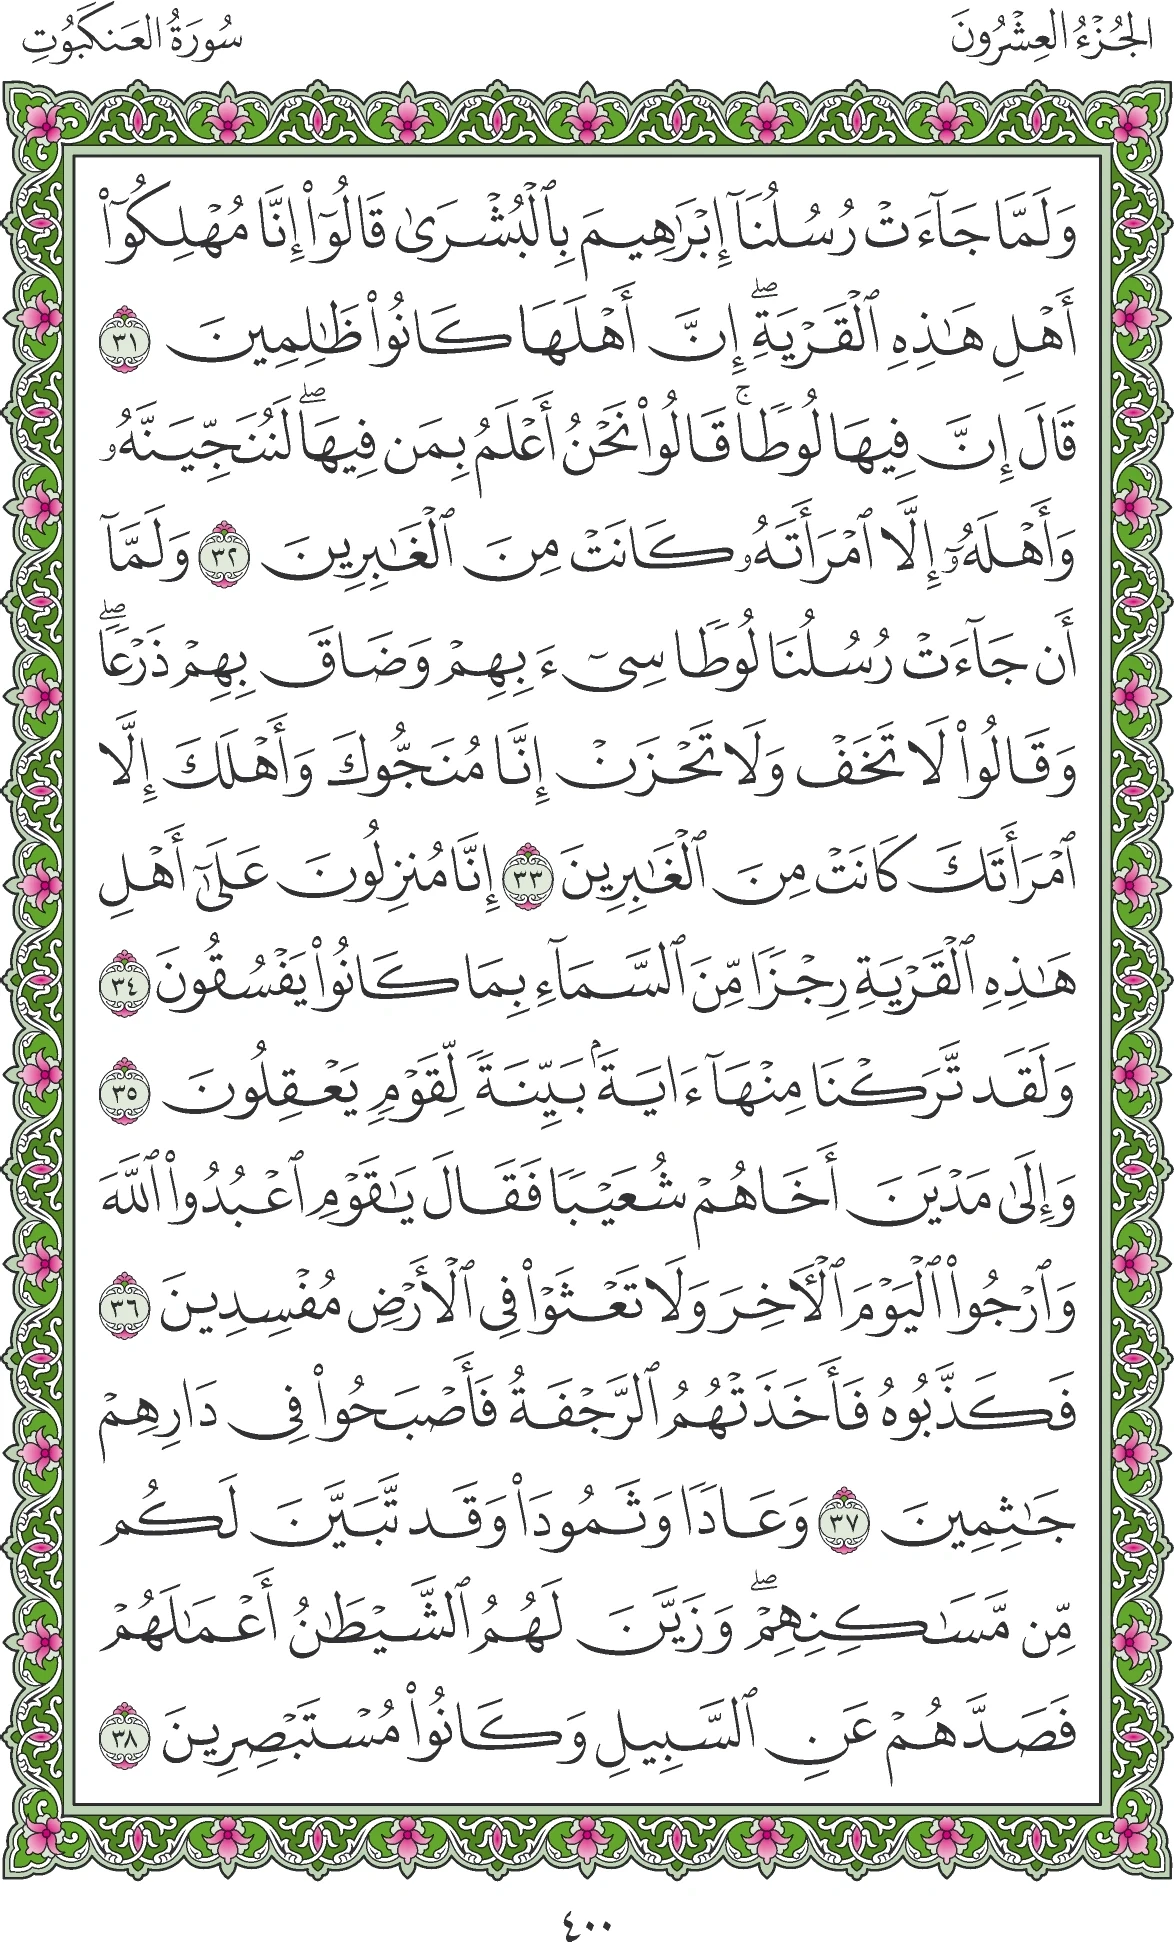 الجُزْءُ العِشْرُونَ
سُورَةُ العَنكَبُوتِ
وَلَمَّا جَآءَتْ رُسُلُنَآ إِبْرَٰهِيمَ بِٱلْبُشْرَىٰ قَالُوٓا۟ إِنَّا مُهْلِكُوٓا۟
أَهْلِ هَٰذِهِ ٱلْقَرْيَةِۖ إِنَّ أَهْلَهَا كَانُوا۟ ظَٰلِمِينَ ٣١
قَالَ إِنَّ فِيهَا لُوطًاۚ قَالُوا۟ نَحْنُ أَعْلَمُ بِمَن فِيهَاۖ لَنُنَجِّيَنَّهُۥ
وَأَهْلَهُۥٓ إِلَّا ٱمْرَأَتَهُۥ كَانَتْ مِنَ ٱلْغَٰبِرِينَ ٣٢ وَلَمَّآ
أَن جَآءَتْ رُسُلُنَا لُوطًا سِىٓءَ بِهِمْ وَضَاقَ بِهِمْ ذَرْعًاۖ
وَقَالُوا۟ لَا تَخَفْ وَلَا تَحْزَنْ إِنَّا مُنَجُّوكَ وَأَهْلَكَ إِلَّا
ٱمْرَأَتَكَ كَانَتْ مِنَ ٱلْغَٰبِرِينَ ٣٣ إِنَّا مُنزِلُونَ عَلَىٰٓ أَهْلِ
هَٰذِهِ ٱلْقَرْيَةِ رِجْزًا مِّنَ ٱلسَّمَآءِ بِمَا كَانُوا۟ يَفْسُقُونَ ٣٤
وَلَقَد تَّرَكْنَا مِنْهَآ ءَايَةًۢ بَيِّنَةً لِّقَوْمٍ يَعْقِلُونَ ٣٥
وَإِلَىٰ مَدْيَنَ أَخَاهُمْ شُعَيْبًا فَقَالَ يَٰقَوْمِ ٱعْبُدُوا۟ ٱللَّهَ
وَٱرْجُوا۟ ٱلْيَوْمَ ٱلْءَاخِرَ وَلَا تَعْثَوْا۟ فِى ٱلْأَرْضِ مُفْسِدِينَ ٣٦
فَكَذَّبُوهُ فَأَخَذَتْهُمُ ٱلرَّجْفَةُ فَأَصْبَحُوا۟ فِى دَارِهِمْ
جَٰثِمِينَ ٣٧ وَعَادًا وَثَمُودَا۟ وَقَد تَّبَيَّنَ لَكُم
مِّن مَّسَٰكِنِهِمْۖ وَزَيَّنَ لَهُمُ ٱلشَّيْطَٰنُ أَعْمَٰلَهُمْ
فَصَدَّهُمْ عَنِ ٱلسَّبِيلِ وَكَانُوا۟ مُسْتَبْصِرِينَ ٣٨
٤٠٠